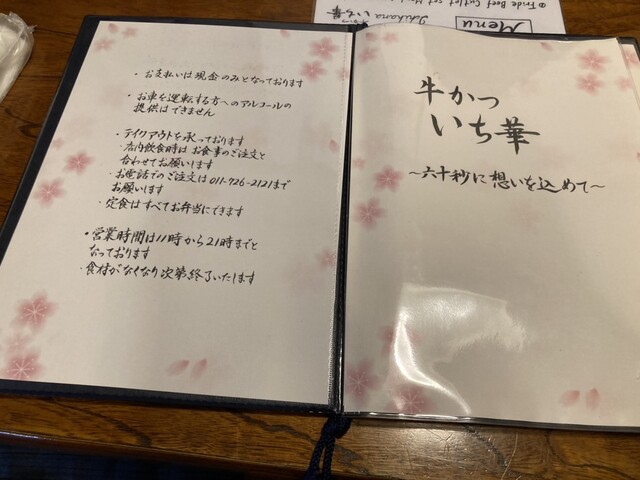 ・お支払いは現金のみとなっております
・お車を運転する方へのアルコールの
提供はできません
・テイクアウトを承っております
・店内飲食時はお食事のご注文と
合わせてお願いします
・お電話でのご注文は011-726-2121まで
お願いします
・定食はすべてお弁当にできます
・営業時間は11時から21時までと
なっております
・食材がなくなり次第終了いたします
牛かつ
いち華
～六十秒に想いを込めて～
Menu
牛かつ
Ichihana いち華
Beef Cutlet set